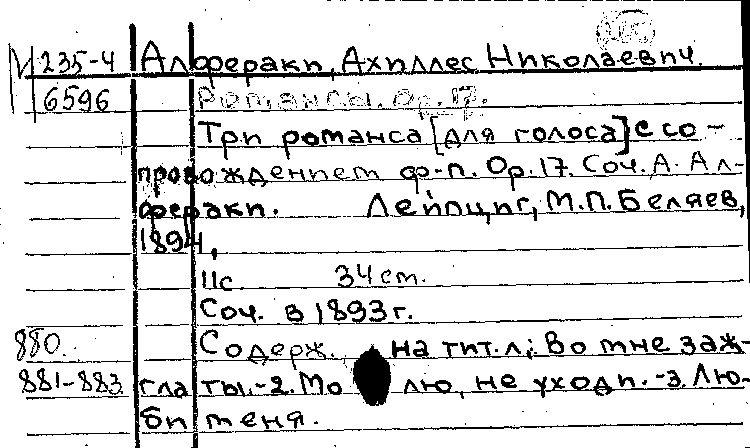 М 235-4 Алфераки, Ахиллес Николаевич.
6596 Романсы. Ор. 17.
Три романса [для голоса] с со-
провождением ф-п. Ор. 17. Соч. А. Ал-
фераки. Лейпциг, М.П. Беляев,
1894,
11с. 34 см.
Соч. в 1893 г.
880. Содерж. на тит. л.: Во мне заж-
881-883 гла ты.-2. Мо лю, не уходи.-3. Лю-
би меня.